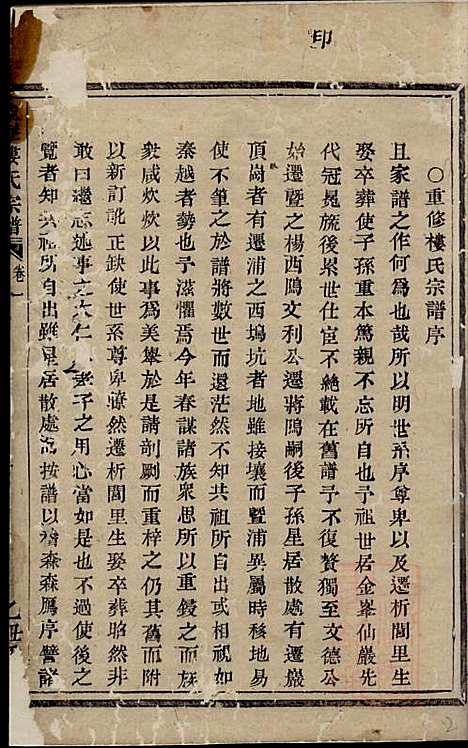 印
〇重修樓氏宗譜序
且家譜之作何為也哉所以明世系序尊卑以及遷析閭里生
娶卒葬使子孫重本篤親不忘所自也予祖世居金峯仙巖先
代冠冕旒後累世仕宦不絶載在舊譜予不復贅獨至文德公
始遷暨之楊西鴈文利公遷蔣鴈嗣後子孫星居散處有遷巖
頂崗者有遷浦之西塢坑者地雖接壤而暨浦異屬時移地易
使不筆之於譜將數世而還茫然不知共祖所自出或相視如
秦越者勢也予滋懼焉今年春謀諸族衆思所以重鋟之而族
衆咸欣欣以此事為美舉於是請剞劂而重梓之仍其舊而附
以新訂訛正缺使世系尊卑瞭然遷析閭里生娶卒葬昭然非
敢曰繼志述事文大仁孝子之用心當如是也不過使後之
覽者知共祖所自出雖星居散處而按譜以稽森森鴈序譬諸
氏宗譜
卷